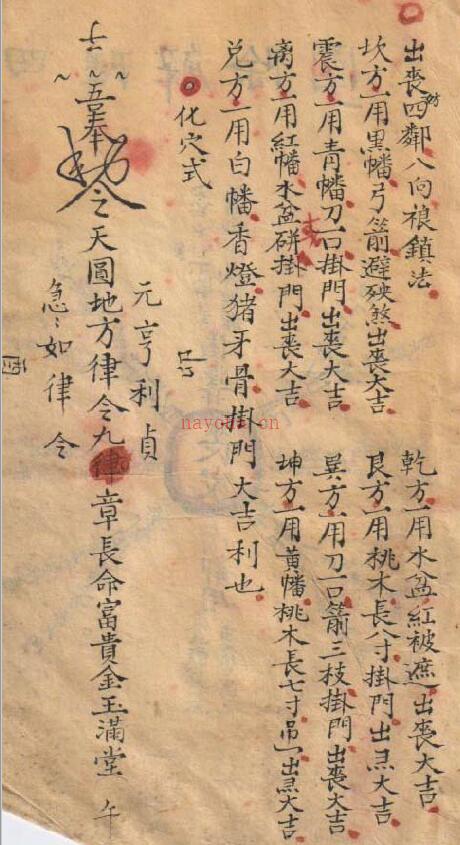 出喪四鄰八向禳鎮法
坎方一用黑幡弓箭避殃煞出喪大吉
乾方一用水盆紅被遮出喪大吉
艮方一用桃木長八寸掛門出喪大吉
震方一用青幡刀一口掛門出喪大吉
巽方一用刀一口箭三枝掛門出喪大吉
離方一用紅幡水盆砖掛門出喪大吉
坤方一用黃幡桃木長七寸吊出喪大吉
兌方一用白幡香燈猪牙骨掛門大吉利也
化穴式
元亨利貞
奉
令天圓地方律令九章長命富貴金玉滿堂
午
急々如律令
四
nayona.cn